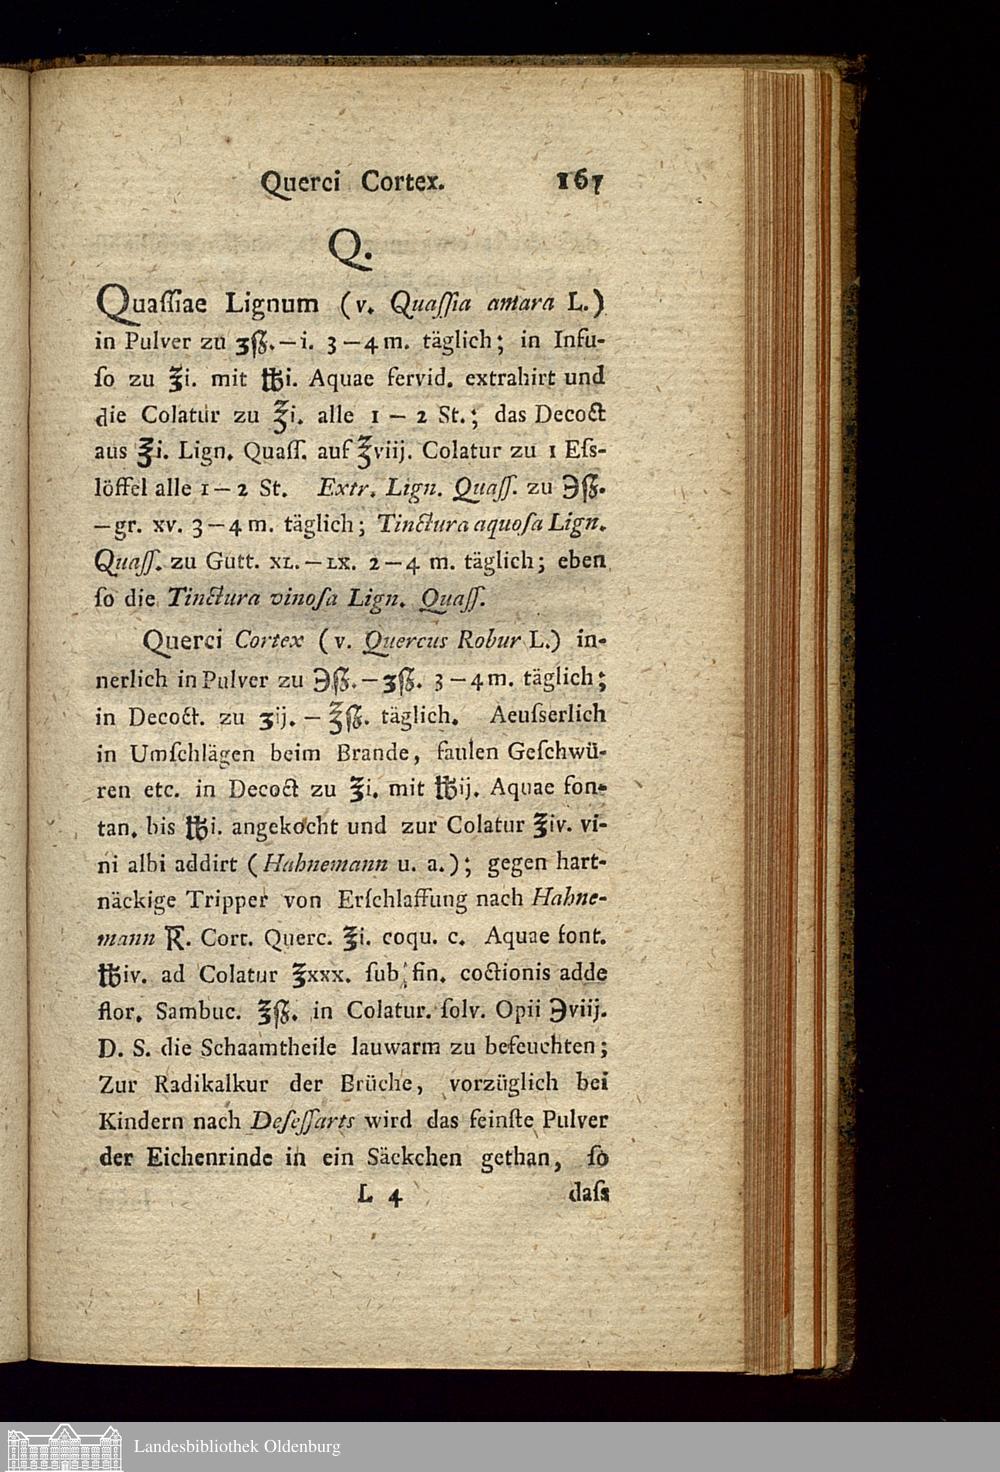 Querci Cortex. 167
Q.
Quaſſiae Lignum (v. Quaſſia amara L.)
in Pulver zu ʒſß.—i. 3—4 m. täglich; in Infu-
ſo zu ℥i. mit ℔i. Aquae fervid. extrahirt und
die Colatur zu ℥i. alle 1 — 2 St.; das Decoct
aus ℥i. Lign. Quaſſ. auf ℥viij. Colatur zu 1 Eſs-
löffel alle 1—2 St. Extr. Lign. Quaſſ. zu ℈ſß.
—gr. xv. 3—4 m. täglich; Tinctura aquoſa Lign.
Quaſſ. zu Gutt. XL.—LX. 2—4 m. täglich; eben
ſo die Tinctura vinoſa Lign. Quaſſ.
Querci Cortex (v. Quercus Robur L.) in-
nerlich in Pulver zu ℈ſß.—ʒſß. 3—4 m. täglich;
in Decoct. zu ʒij. — ℥ſß. täglich. Aeuſserlich
in Umſchlägen beim Brande, faulen Geſchwü-
ren etc. in Decoct zu ℥i. mit ℔ij. Aquae fon-
tan. bis ℔i. angekocht und zur Colatur ℥iv. vi-
ni albi addirt (Hahnemann u. a.); gegen hart-
näckige Tripper von Erſchlaffung nach Hahne-
mann ℞. Cort. Querc. ℥i. coqu. c. Aquae font.
℔iv. ad Colatur ℥xxx. ſub fin. coctionis adde
flor. Sambuc. ℥ſß. in Colatur. ſolv. Opii ℈viij.
D. S. die Schaamtheile lauwarm zu befeuchten;
Zur Radikalkur der Brüche, vorzüglich bei
Kindern nach Deſeſſarts wird das feinſte Pulver
der Eichenrinde in ein Säckchen gethan, ſo
L 4 daſs
Landesbibliothek Oldenburg